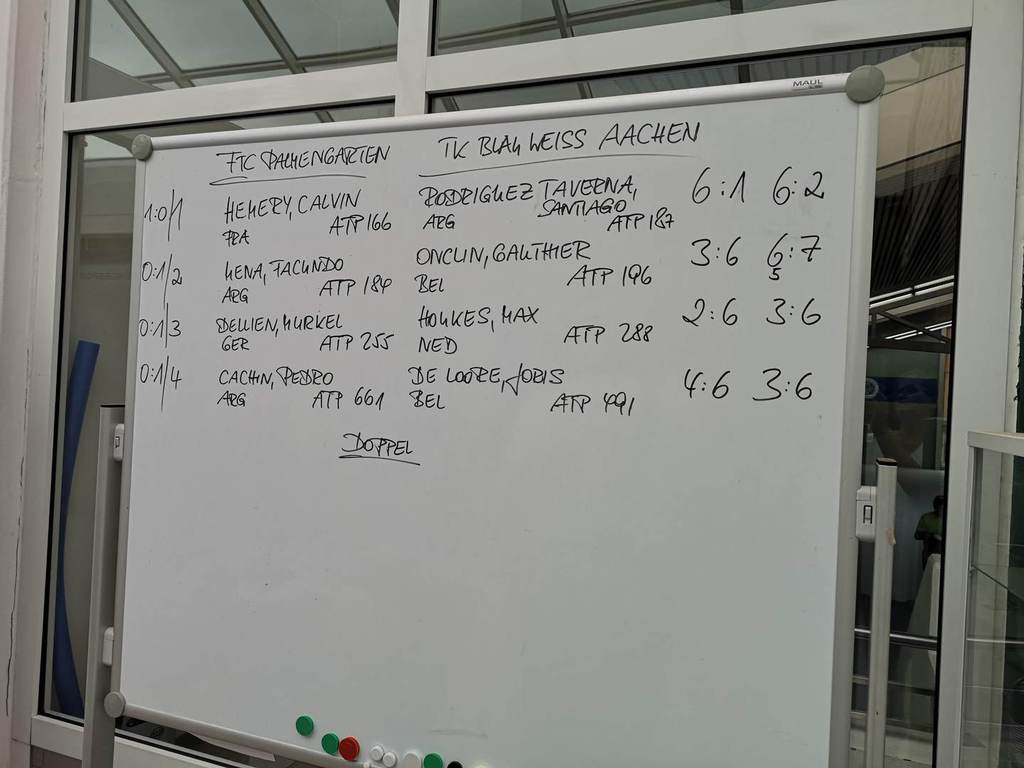 MAUL
FTC PALMENGARTEN TK BLAU WEISS AACHEN
1:0/1 HEMERY, CALVIN RODRIGUEZ TAVERNA, 6:1 6:2
SANTIAGO
FRA ATP 166 ARG ATP 187
0:1/2 MENA, FACUNDO ONCLIN, GAUTHIER 3:6 6:7
5
ARG ATP 184 BEL ATP 196
0:1/3 DELLIEN, MURKEL HOUKES, MAX 2:6 3:6
GER ATP 255 NED ATP 288
0:1/4 CACHIN, PEDRO DE LOORE, JORIS 4:6 3:6
ARG ATP 661 BEL ATP 491
DOPPEL